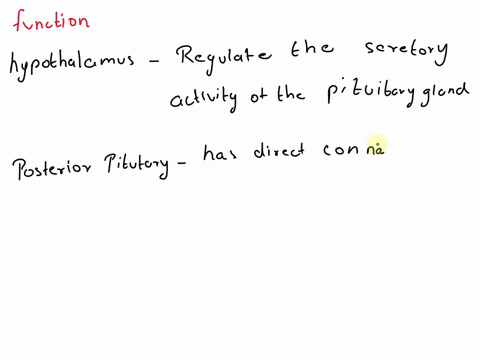 function
hypothalamus - Regulate the secretory
activity of the pituitary gland
Posterior Pitutory - has direct con